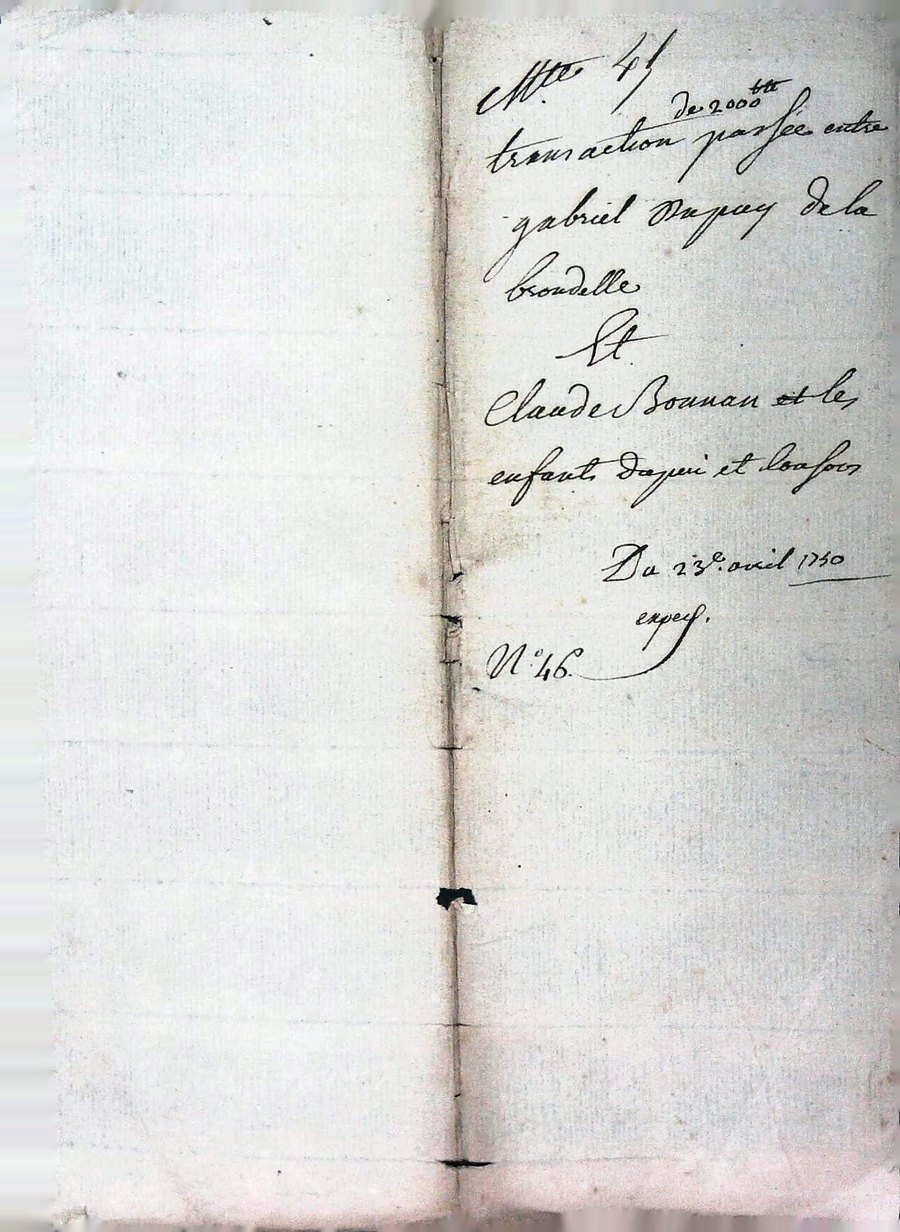 Mtte 45
de 2000 tt
transaction passée entre
gabriel Dupuy de la
brondelle
Et
Claude Bonnan et les
enfants dupui et
Du 23e. avril 1750
exped.
N° 46.